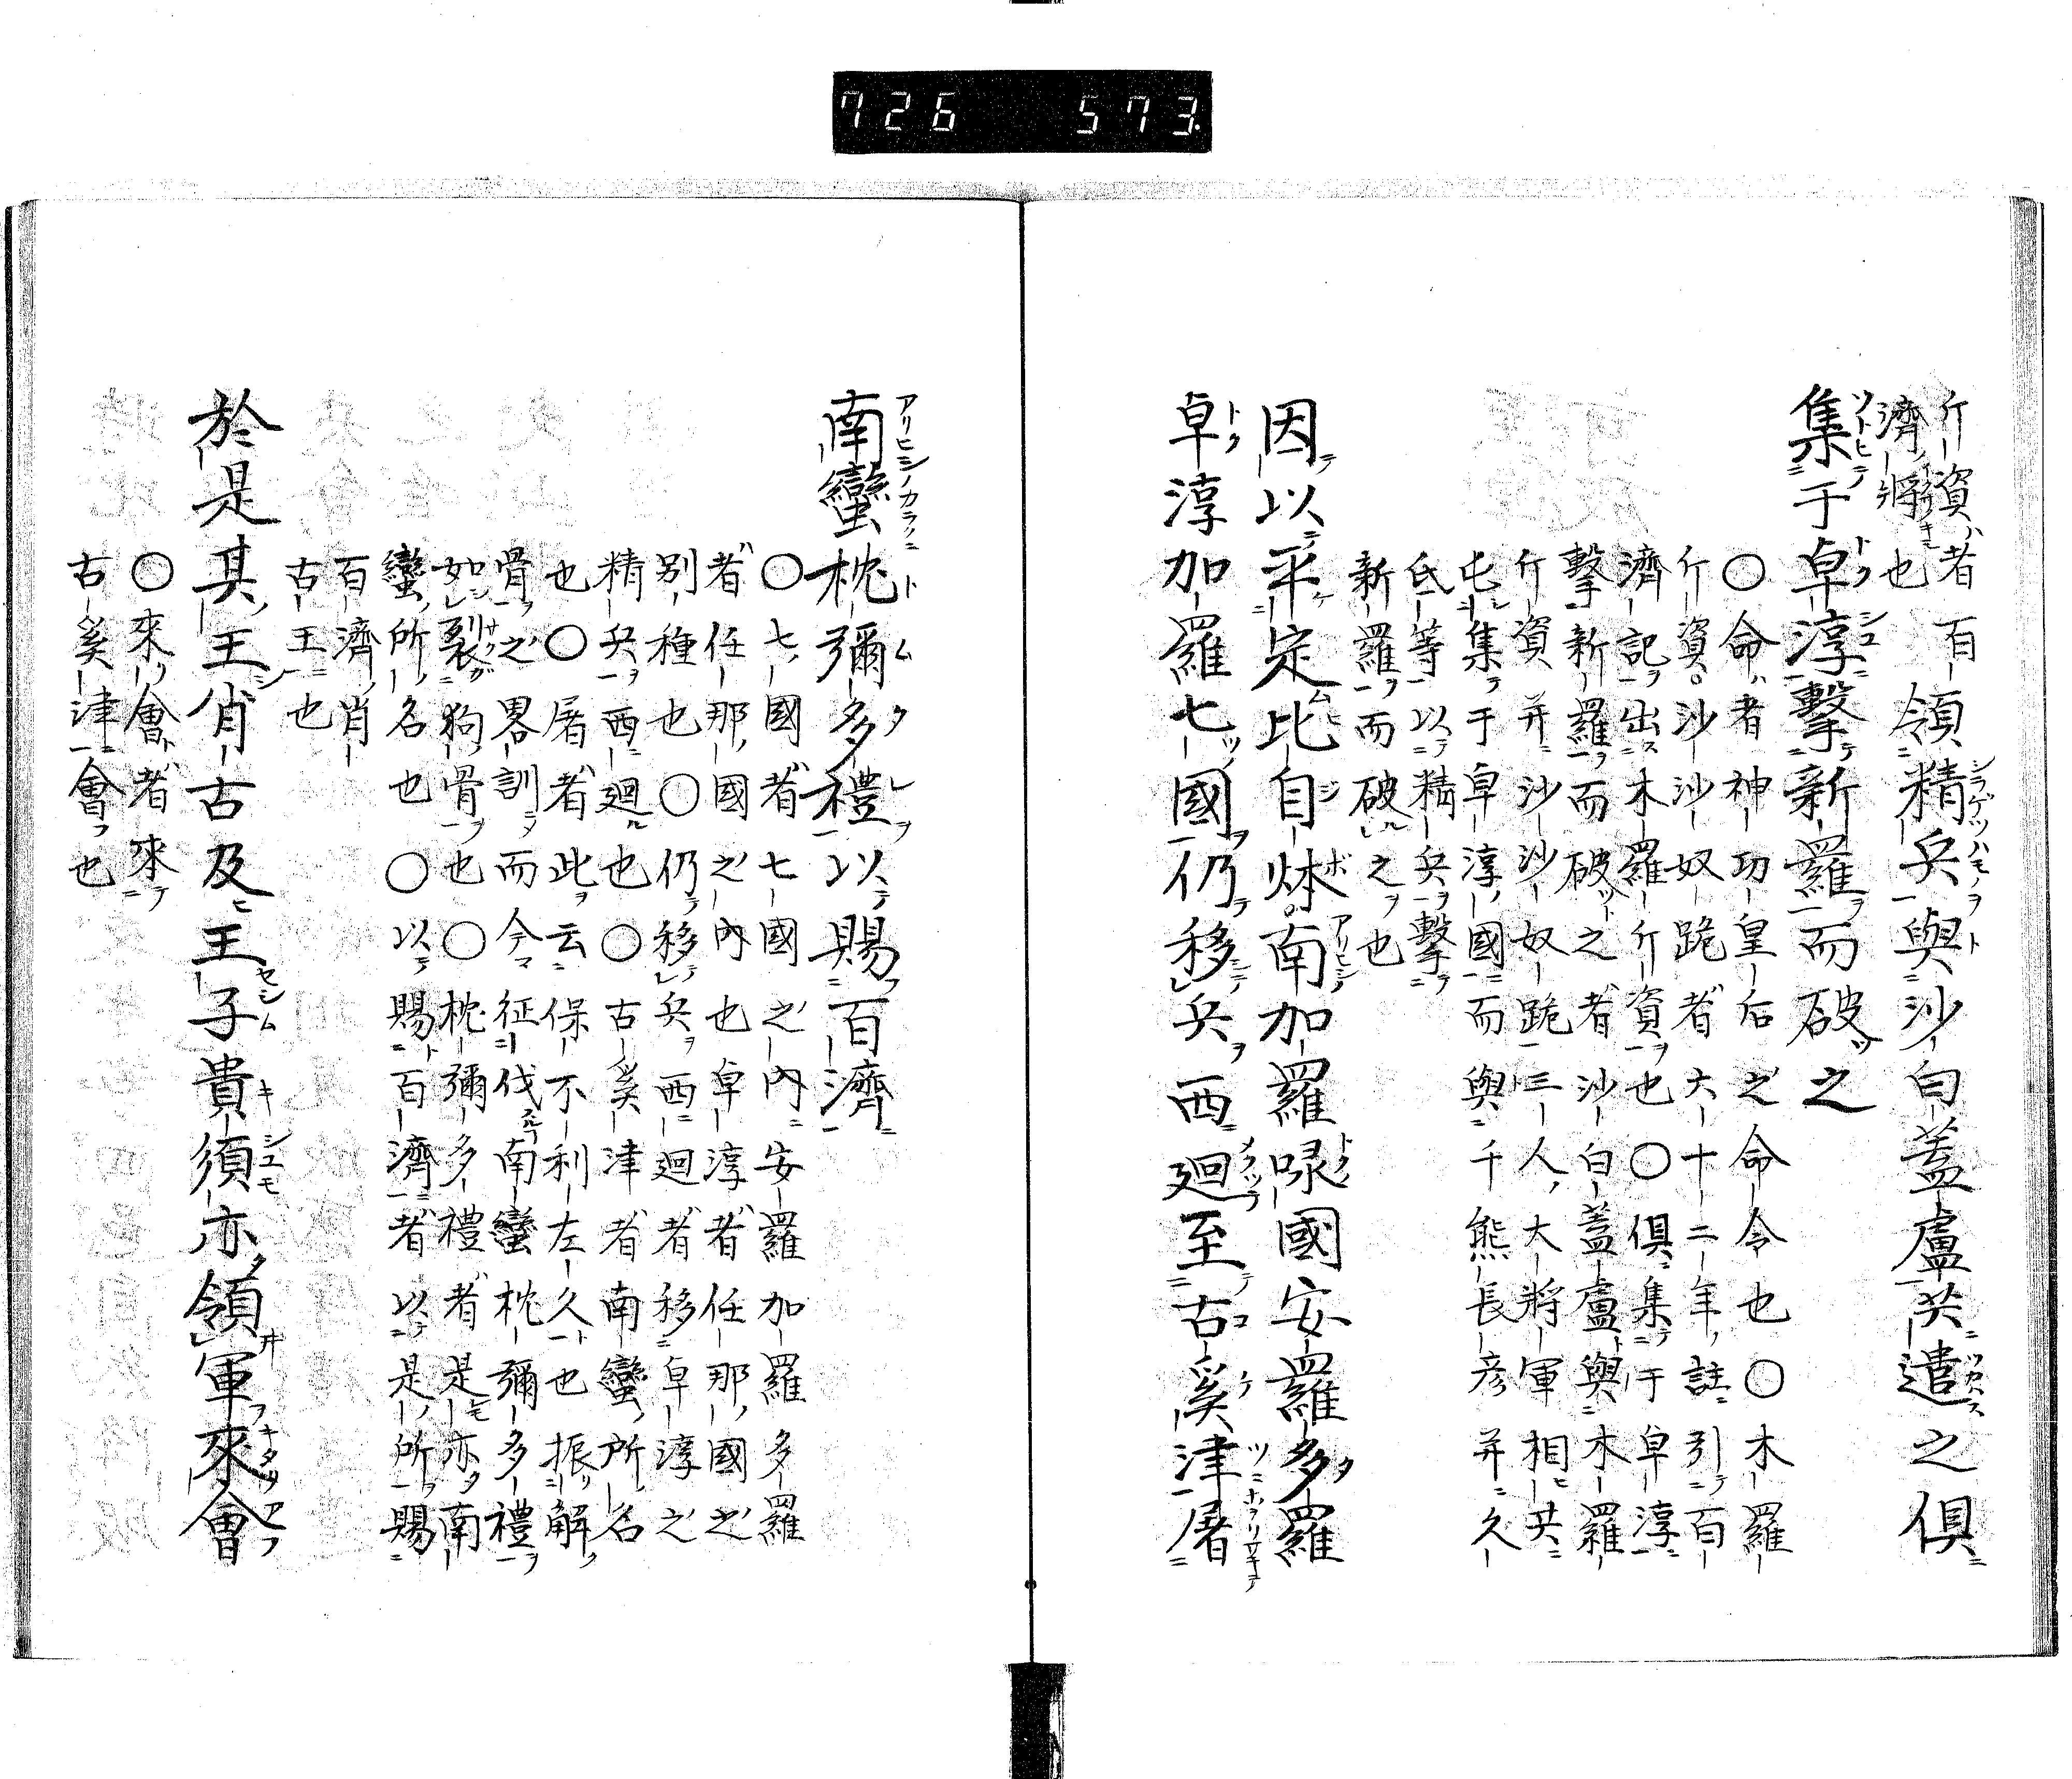 726 573.
斤資者百
濟將也
領精兵與沙白蓋盧共遣之俱
集于卓淳擊新羅而破之
〇命者神功皇后之命令也〇木羅
斤資。沙沙奴跪者大十二年註引百
濟記出木羅斤資也〇俱集于卓淳
擊新羅而破之者沙白蓋盧與木羅
斤資并沙沙奴跪三人大將軍相共
屯集于卓淳國而與千熊長彦并久
氐等以精兵擊
新羅而破之也
因以平定比自㶱。南加羅㖨國安羅多羅
卓淳加羅七國仍移兵西廻至古奚津屠
南蠻枕彌多禮以賜百濟
〇七國者七國之內安羅加羅多羅
者任那國之內也卓淳者任那國之
別種也〇仍移兵西廻者移卓淳之
精兵西廻也〇古奚津者南蠻所名
也〇屠者此云保不利左久也振解
骨之畧訓而今征伐南蠻枕彌多禮
如裂狗骨也〇枕彌多禮者是亦南
蠻所名也〇以賜百濟者以是所賜
百濟肖
古王也
於是其王肖古及王子貴須亦領軍來會
〇來會者來
古奚津會也